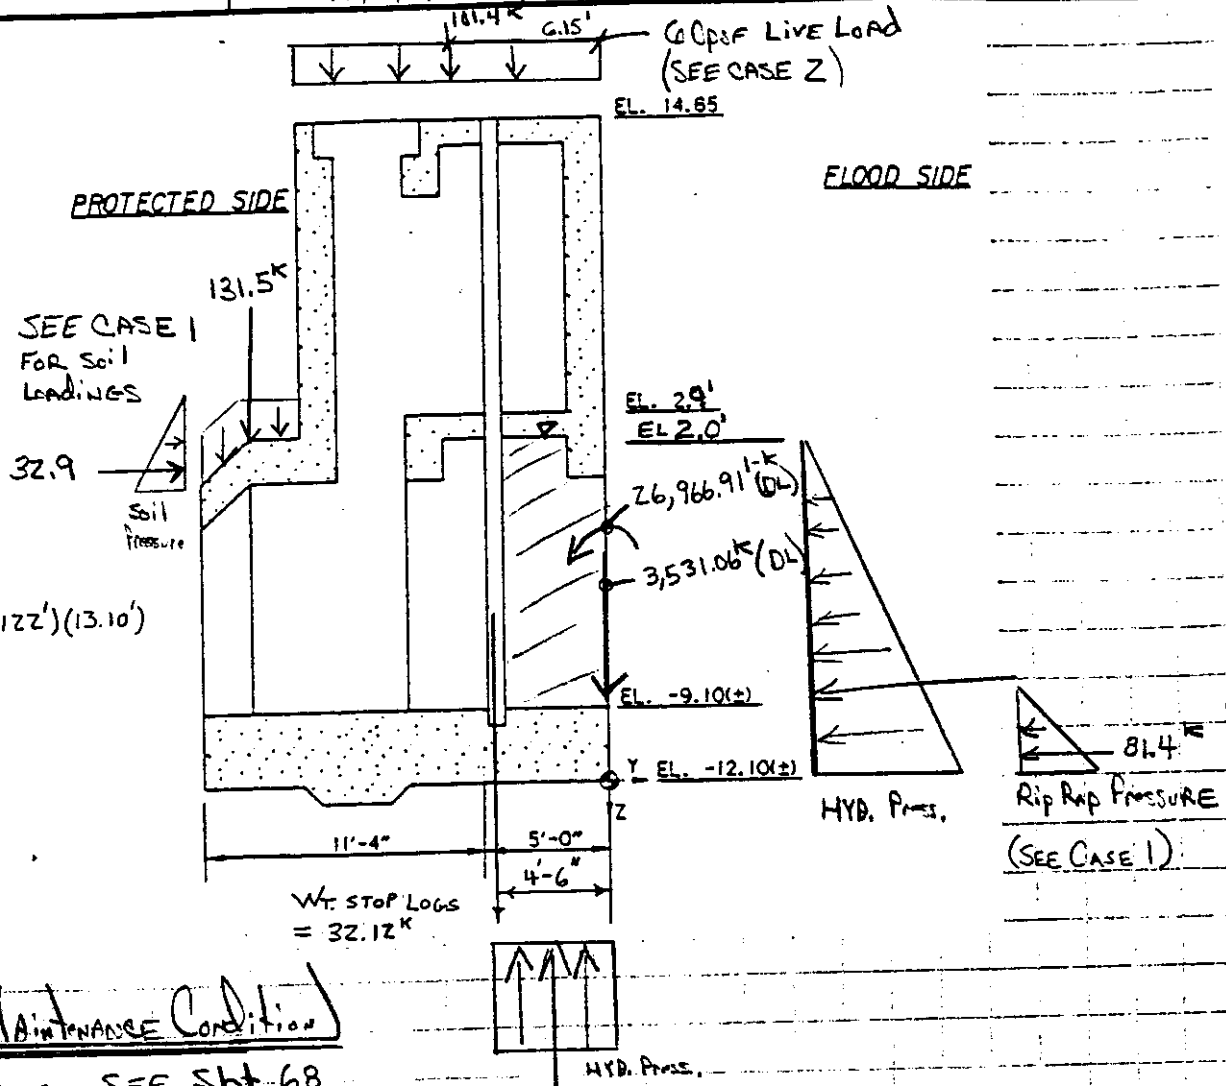 6.15'
60psf LIVE LOAD
(SEE CASE 2)
EL. 14.65
PROTECTED SIDE
FLOOD SIDE
131.5K
SEE CASE 1
FOR Soil
LoadiNGS
32.9
Soil
Pressure
EL. 2.9'
EL 2.0'
26,966.91 1-K (DL)
3,531.06K (DL)
122')(13.10')
EL. -9.10(±)
Y
EL. -12.10(±)
Z
81.4K
HYD. Press.
Rip Rap PressURE
(SEE CASE 1)
11'-4"
5'-0"
4'-6"
WT. STOP LOGS
= 32.12K
MAiNTENANCE Condition
SEE Sht 68
HYD. Press.